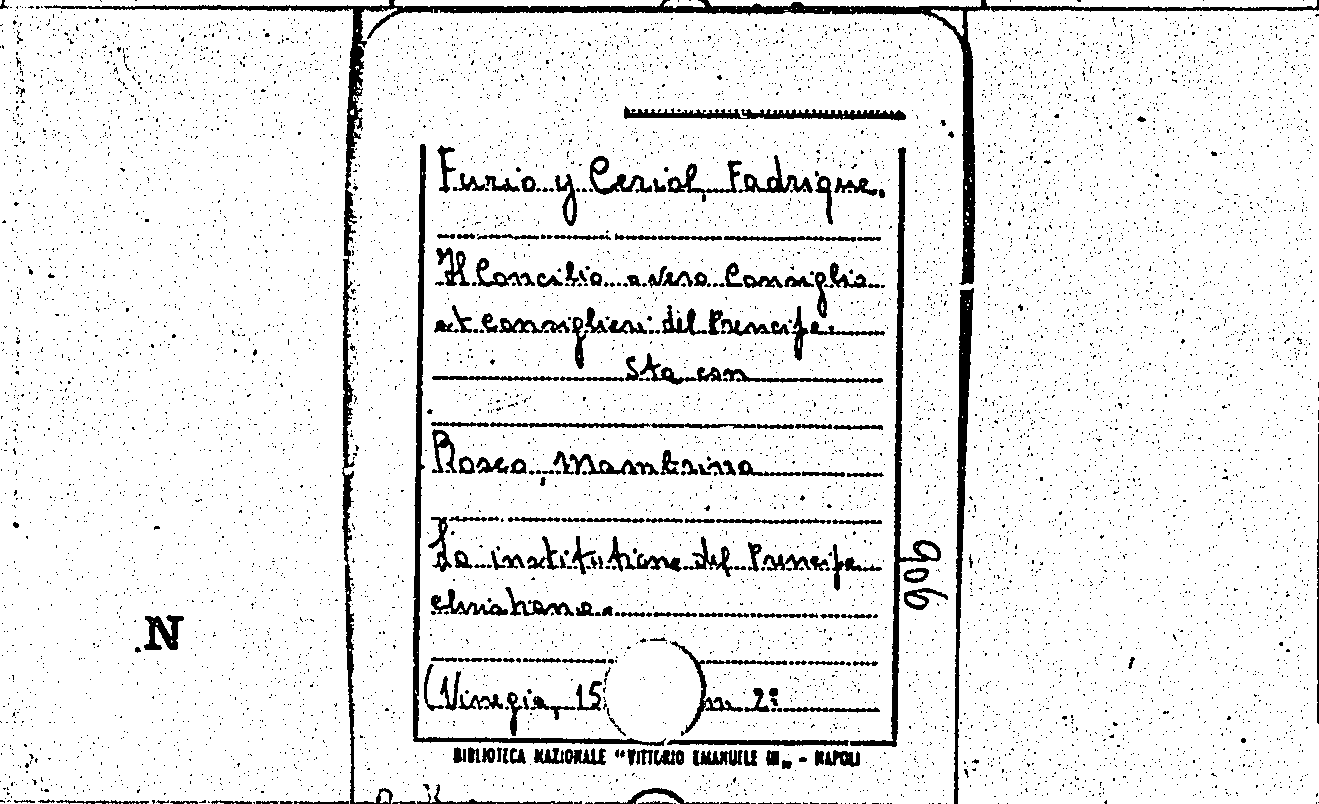 Furio y Ceriol, Fadrique.
Il Concilio overo Consiglio
et consiglieri del Prencipe.
Sta con
Roseo, Mambrino
La institutione del Prencipe
christiano.
(Vinegia, 15 in 2º
BIBLIOTECA NAZIONALE “VITTORIO EMANUELE III„ - NAPOLI
906
N